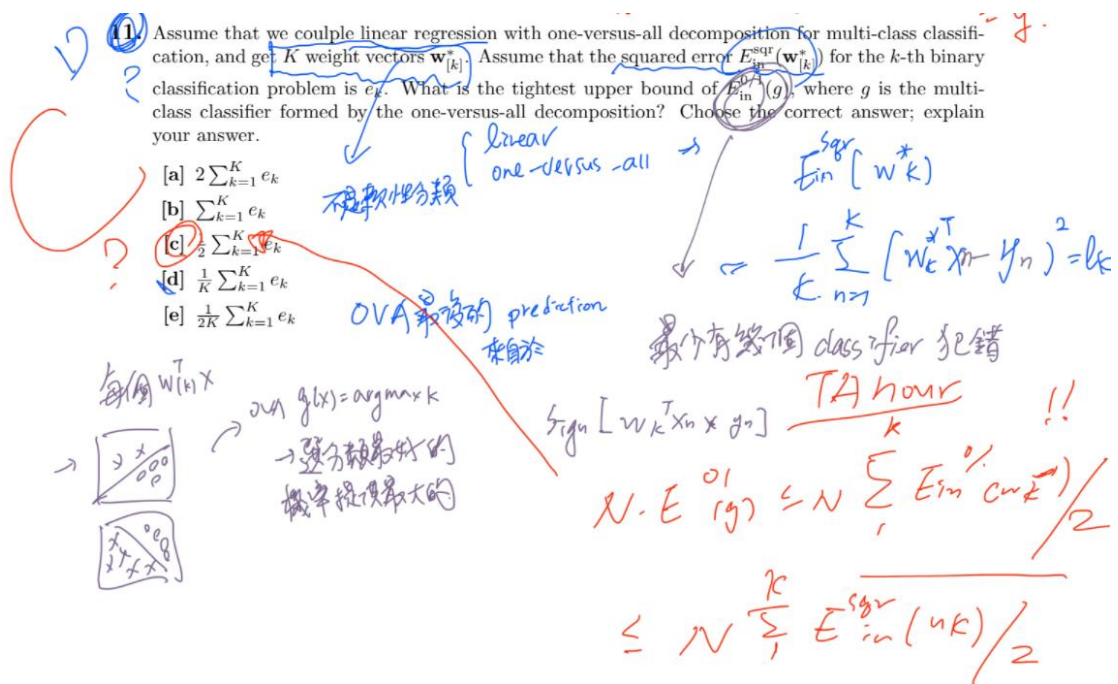 = y.
11. Assume that we coulple linear regression with one-versus-all decomposition for multi-class classifi-
cation, and get K weight vectors w*[k]. Assume that the squared error E_in^sqr(w*[k]) for the k-th binary
classification problem is e_k. What is the tightest upper bound of E_in^0/1(g), where g is the multi-
class classifier formed by the one-versus-all decomposition? Choose the correct answer; explain
your answer.
?
linear
one-versus-all
[a] 2 ∑_{k=1}^K e_k
[b] ∑_{k=1}^K e_k
[c] 1/2 ∑_{k=1}^K e_k
[d] 1/K ∑_{k=1}^K e_k
[e] 1/2K ∑_{k=1}^K e_k
?
不是軟性分類
E_in^sqr (w*k)
= 1/K ∑_{n=1}^K (w_k*^T x_n - y_n)^2 = e_k
OVA 最後的 prediction
來自於
最少有幾個 classifier 犯錯
每個 W[k]^T x
OVA g(x) = argmax k
機率 最大的
sign [w_k^T x_n * y_n]
TA hour !!
N · E^01 (g) ≤ N ∑_1^k E_in^0/1 (w_k) / 2
≤ N ∑_1^K E_in^sqr (wk) / 2